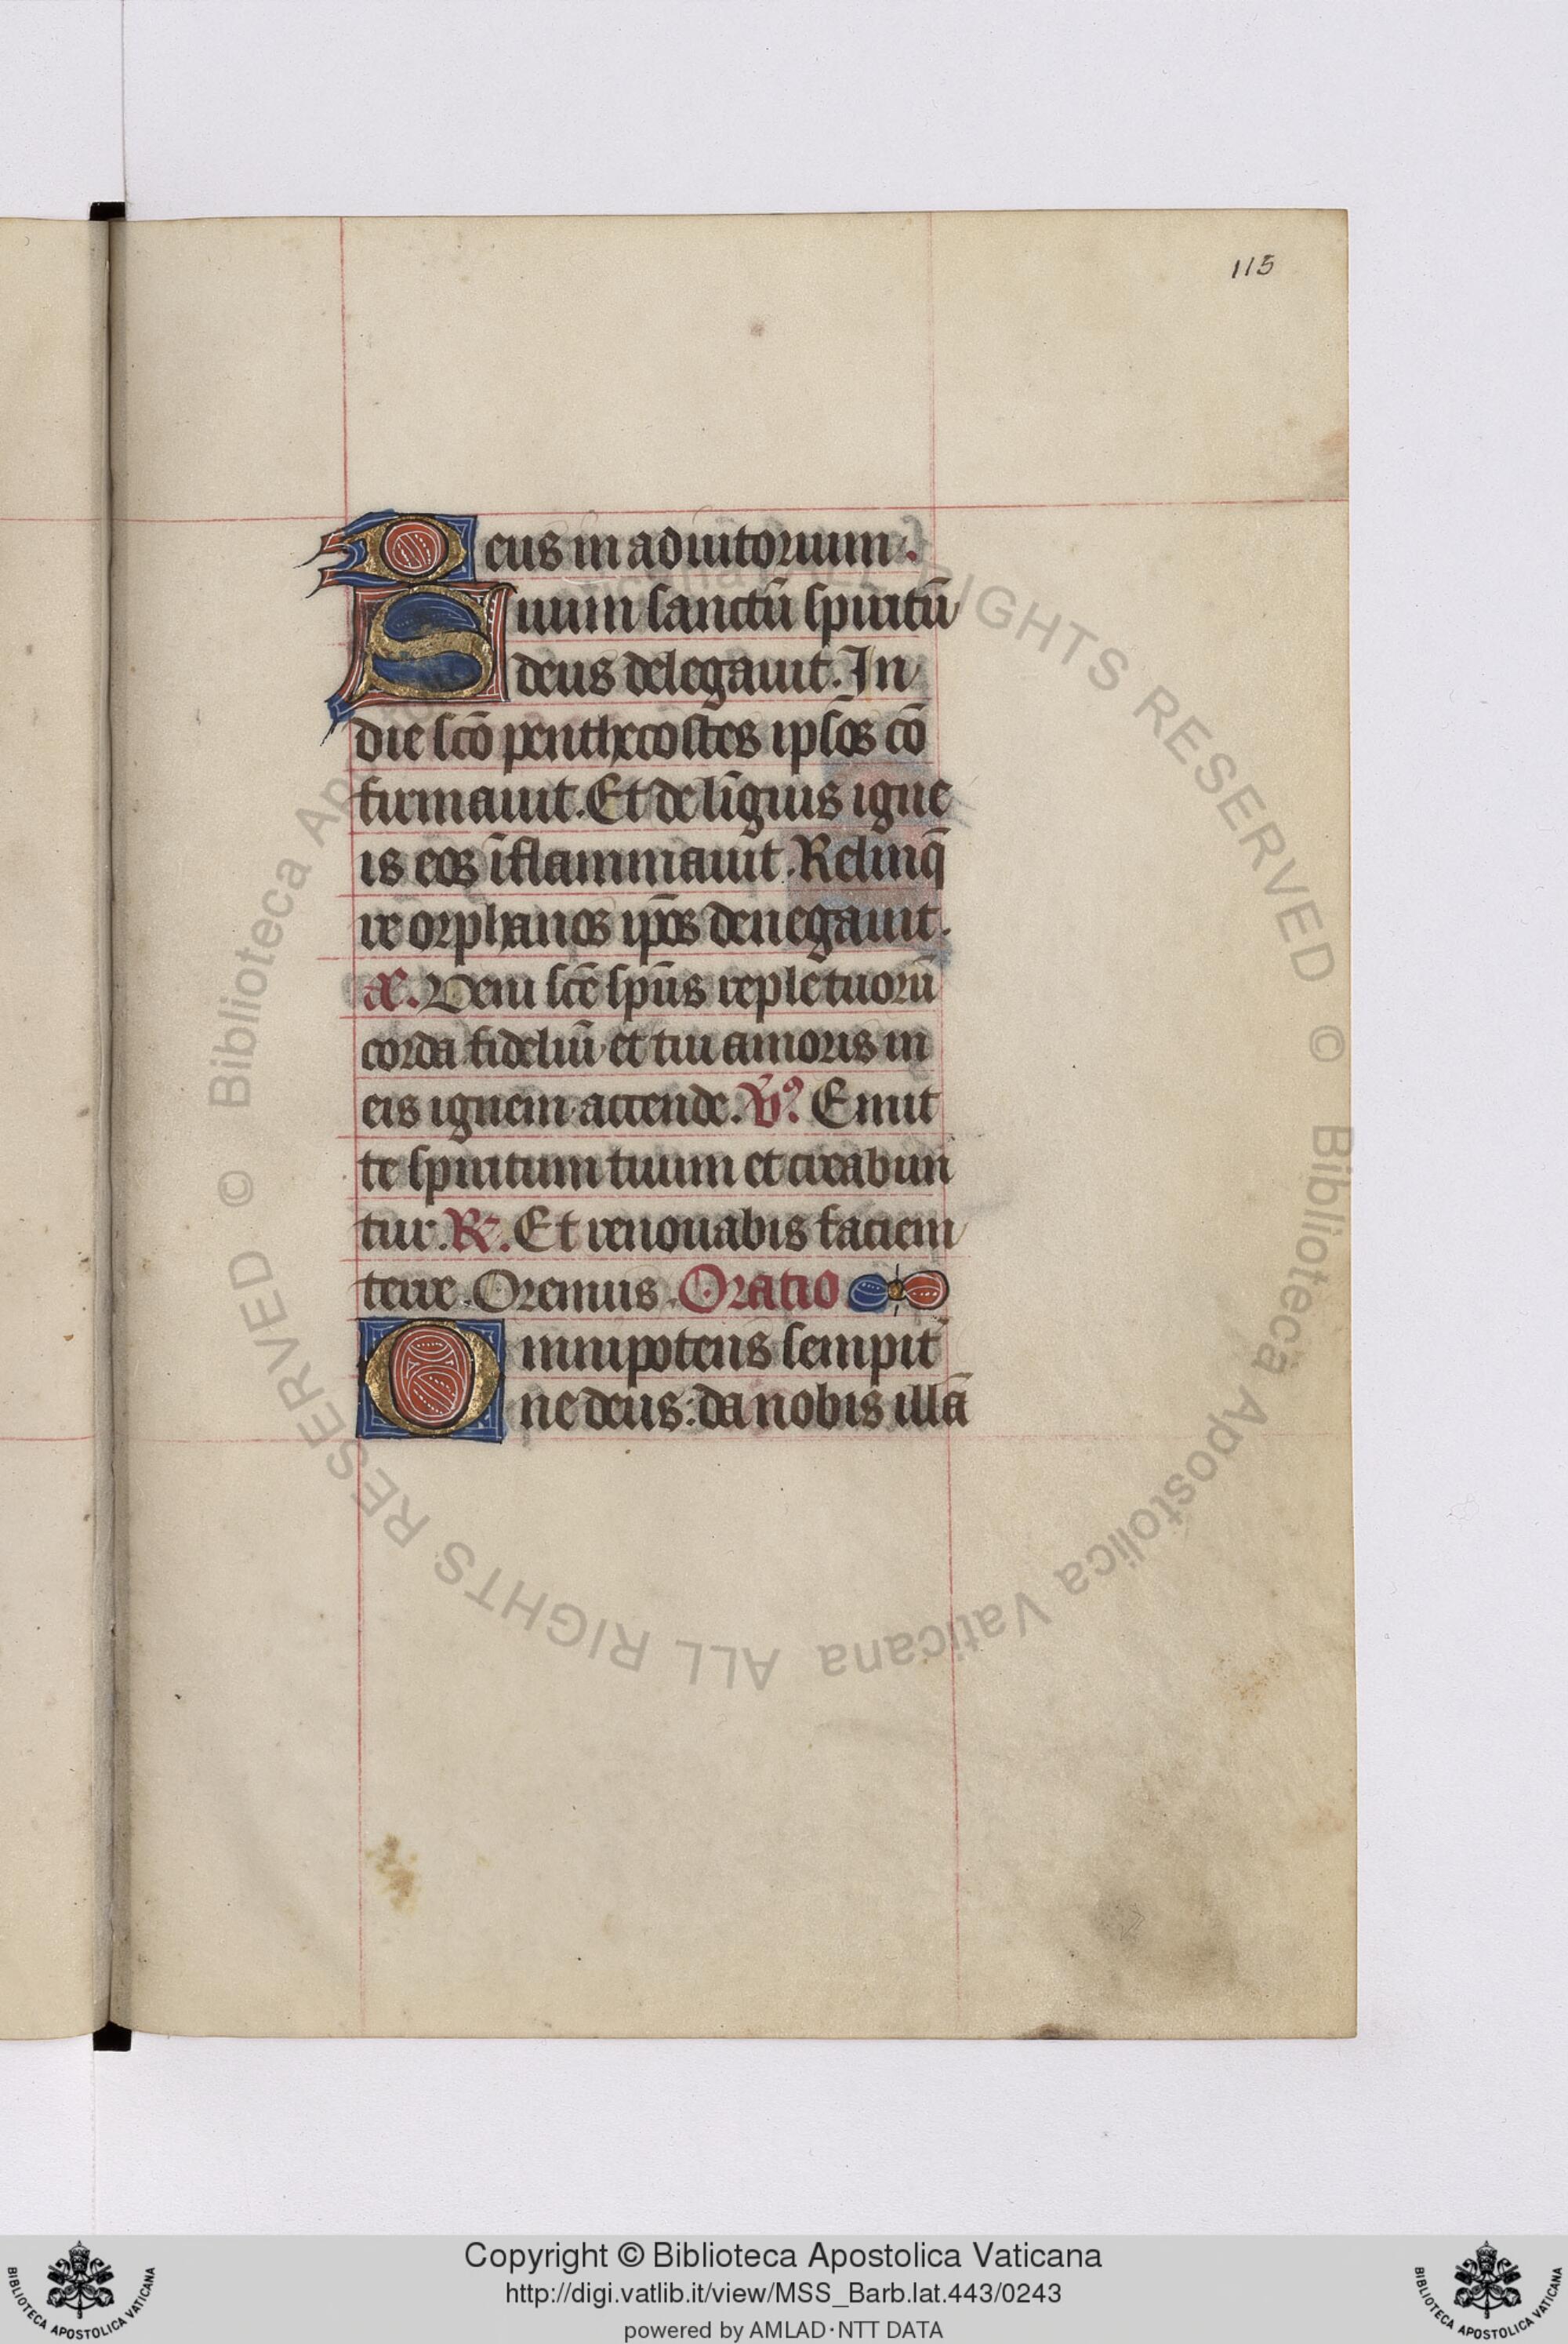 115
Deus in adiutorium.
Suum sanctū spiritū
deus delegauit. In
die scō penthecostes ipsos cō
firmauit. Et de līguis igne
is eos īflammauit. Relinq̄
re orphanos ip̄os denegauit.
añ. Veni scē sp̄us reple tuorū
corda fideliū et tui amoris in
eis ignem accende. V̉. Emit
te spiritum tuum et creabun
tur. R. Et renouabis faciem
terre. Oremus. Oratio
Omnipotens sempit̄
ne deus: da nobis illā
© Biblioteca Apostolica Vaticana ALL RIGHTS RESERVED © Biblioteca Apostolica Vaticana ALL RIGHTS RESERVED
Copyright © Biblioteca Apostolica Vaticana
http://digi.vatlib.it/view/MSS_Barb.lat.443/0243
powered by AMLAD·NTT DATA
BIBLIOTECA APOSTOLICA VATICANA
BIBLIOTECA APOSTOLICA VATICANA